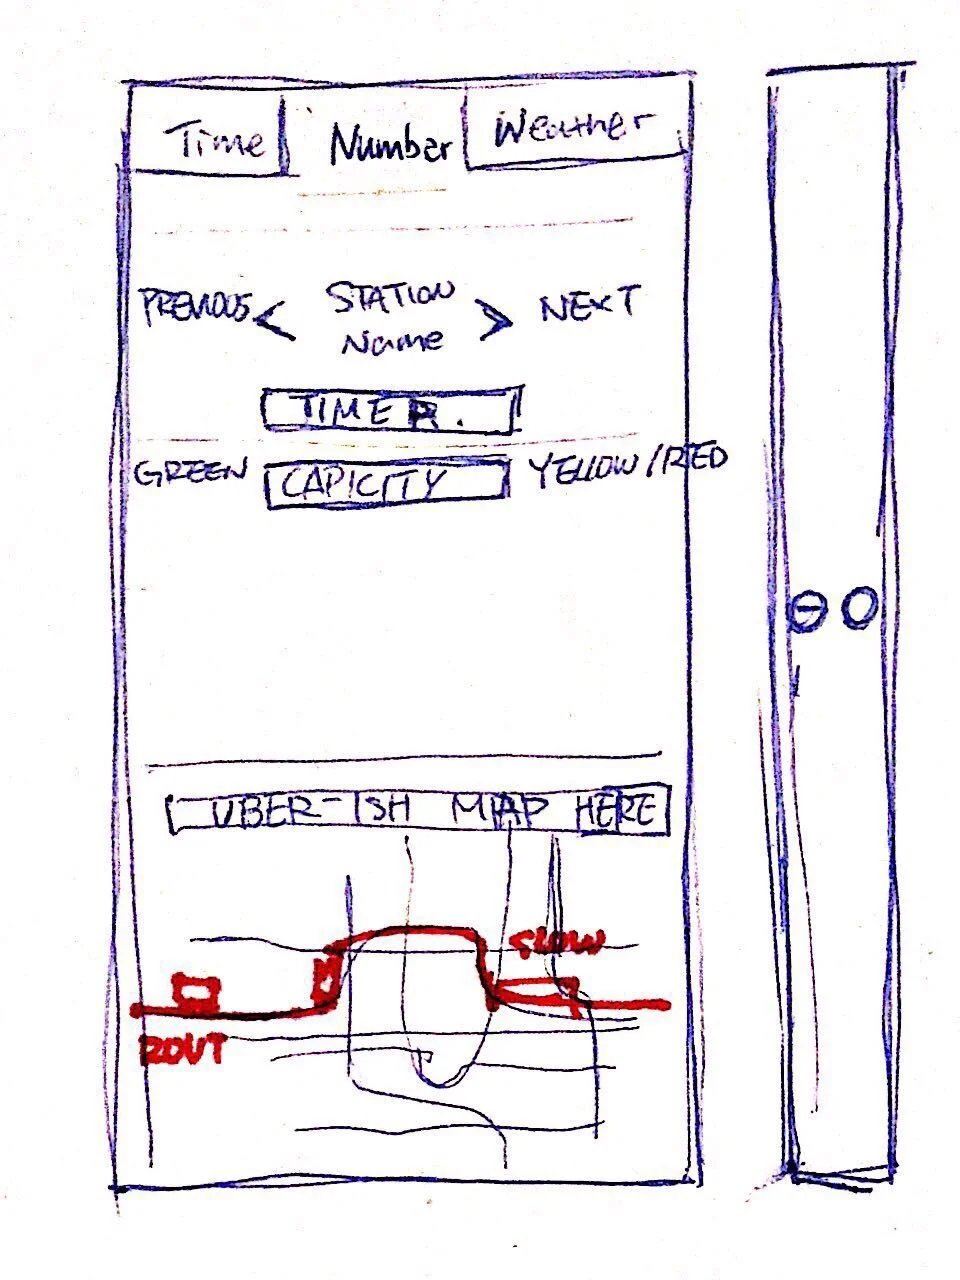 Time Number Weather
PREVIOUS < STATION Name > NEXT
TIMER.
GREEN CAPICITY YELLOW/RED
UBER-ISH MAP HERE
SLOW
ROUT